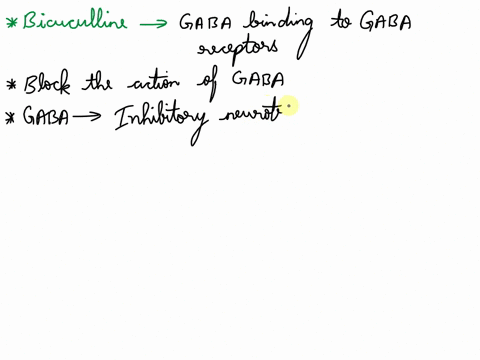 * Bicuculline → GABA binding to GABA
receptors
* Block the action of GABA
* GABA → Inhibitory neurot